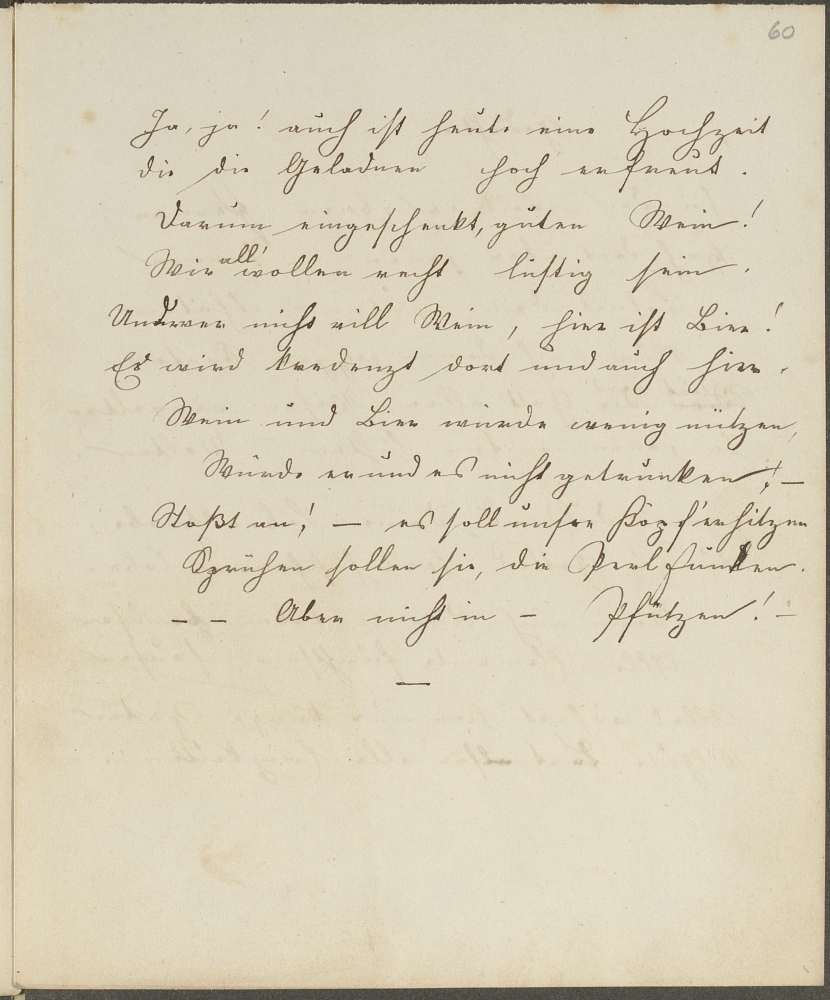 60
Ja, ja! auch ist heute eine Hochzeit
die die Geladnen hoch erfreut.
Darum eingeschenkt, guten Wein!
Wir all' wollen recht lustig sein.
Und wer nicht will Wein, hier ist Bier!
Es wird kredenzt dort und auch hier.
Wein und Bier würde wenig nützen,
Würde er und es nicht getrunken! —
Stoßt an! — es soll unsre Köpf' erhitzen
Sprühen sollen sie, die Perl funken.
— — Aber nicht in — Pfützen! —